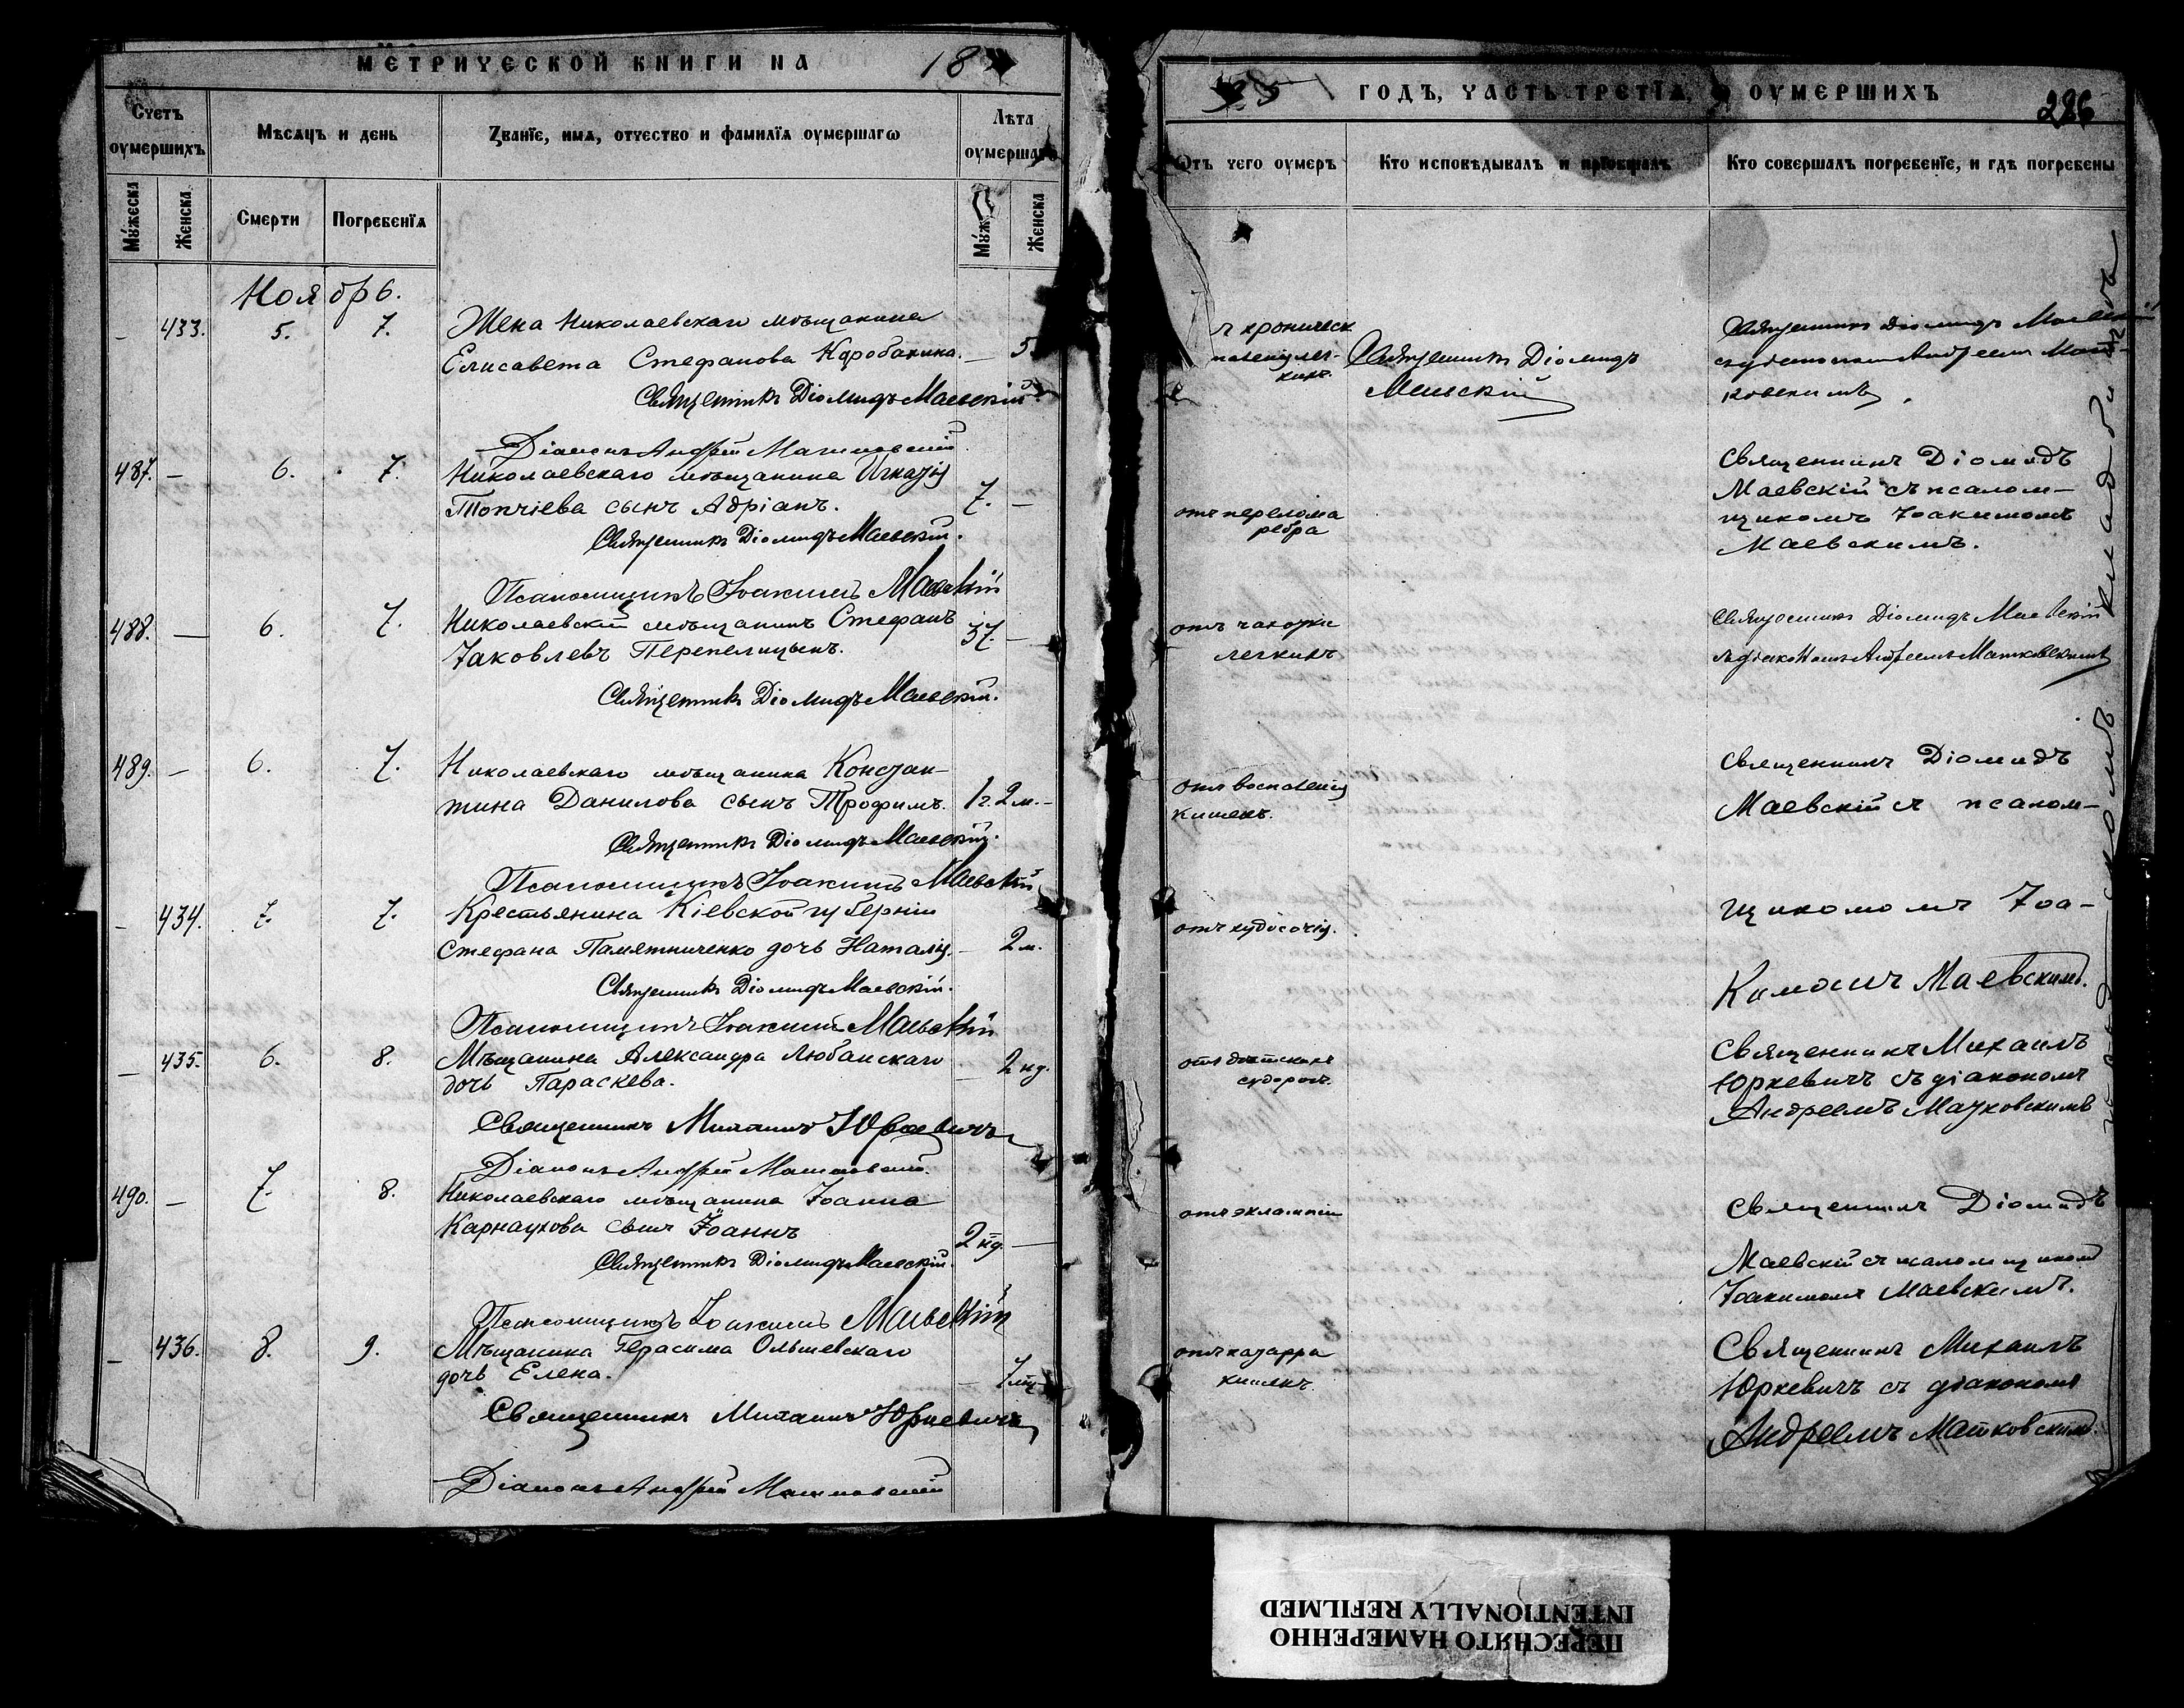 МЕТРИЧЕСКОЙ КНИГИ НА 18
Счетъ оумершихъ
Мѣсяцъ и день
Званїе, имя, отчество и фамилїя оумершагѡ
Лѣта оумершаго
Мужеска
Женска
Смерти
Погребенїя
Муж
Женска
Ноябрь.
433. 5. 7. Жена Николаевскаго мѣщанина
Елисавета Стефанова
Священникъ Діомидъ Маевскій
Діаконъ Андрей Матковскій
487. — 6. 7. Николаевскаго мѣщанина
Топчіева сынъ Адріанъ. 7. —
Священникъ Діомидъ Маевскій.
Псаломщикъ Іоакимъ Маевскій
488. — 6. 7. Николаевскій мѣщанинъ Стефанъ 37. —
Іаковлевъ Перепелицынъ.
Священникъ Діомидъ Маевскій.
489. — 6. 7. Николаевскаго мѣщанина Констан-
тина Данилова сынъ Трофимъ. 1 г. 2 м. —
Священникъ Діомидъ Маевскій.
Псаломщикъ Іоакимъ Маевскій
— 434. 7. 7. Крестьянина Кіевской губерніи
Стефана Памятниченко дочь Наталія. — 2 м.
Священникъ Діомидъ Маевскій.
Псаломщикъ Іоакимъ Маевскій
— 435. 6. 8. Мѣщанина Александра Любанскаго — 2 нд.
дочь Параскева.
Священникъ Михаилъ Юркевичъ
Діаконъ Андрей Матковскій.
490. — 7. 8. Николаевскаго мѣщанина Іоанна
Карнаухова сынъ Іоаннъ 2 нд. —
Священникъ Діомидъ Маевскій.
Псаломщикъ Іоакимъ Маевскій
— 436. 8. 9. Мѣщанина Герасима Ольшевскаго
дочь Елена.
Священникъ Михаилъ Юркевичъ
Діаконъ Андрей Матковскій
ГОДЪ, ЧАСТЬ ТРЕТЇЯ, ОУМЕРШИХЪ
286
Отъ чего оумеръ
Кто исповѣдывалъ и прїобщалъ
Кто совершалъ погребенїе, и гдѣ погребены
хроническ
Священникъ Діомидъ
Маевскій
Священникъ Діомидъ Маевскій
съ діакономъ Андреемъ Мат-
ковскимъ
отъ перелома
ребра
Священникъ Діомидъ
Маевскій съ псалом-
щикомъ Іоакимомъ
Маевскимъ.
отъ чахотки
легкихъ
Священникъ Діомидъ Маевскій
съ діакономъ Андреемъ Матковскимъ
отъ воспаленія
кишекъ.
Священникъ Діомидъ
Маевскій съ псалом-
щикомомъ Іоа-
кимомъ Маевскимъ.
отъ худосочія.
отъ дѣтскихъ
судорогъ.
Священникъ Михаилъ
Юркевичъ съ діакономъ
Андреемъ Матковскимъ
отъ эклампсіи
Священникъ Діомидъ
Маевскій съ псаломщикомъ
Іоакимомъ Маевскимъ.
отъ катарра
кишекъ.
Священникъ Михаилъ
Юркевичъ съ діакономъ
Андреемъ Матковскимъ.
ПЕРЕСНЯТО НАМЕРЕННО
INTENTIONALLY REFILMED